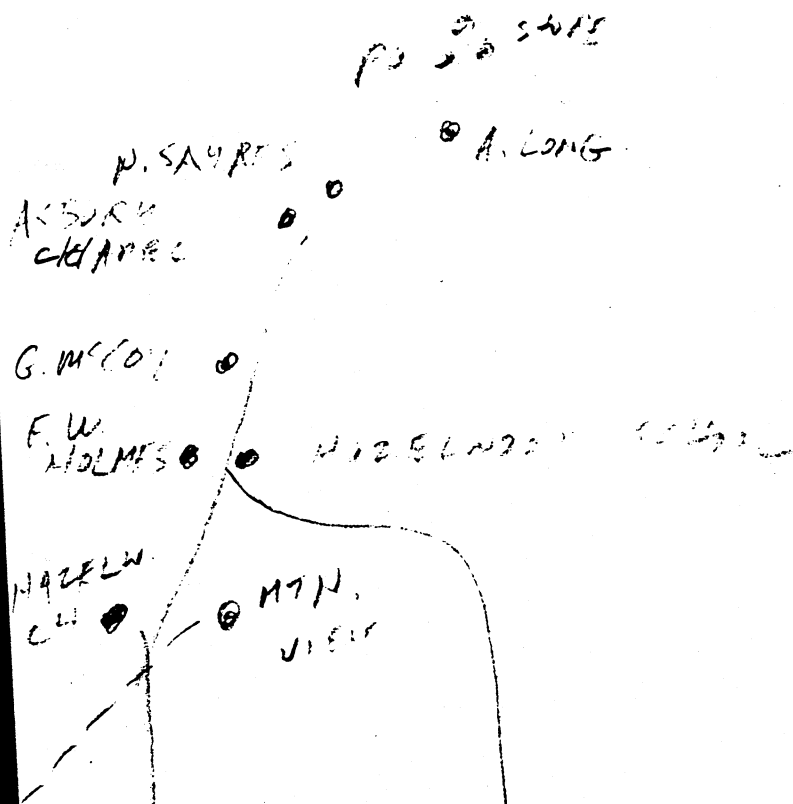 PO STORE
A. LONG
N. SAYRES
ASBURY
CHAPEL
G. McCOY
E. W.
HOLMES
HAZELWOOD SCHOOL
HAZELW.
CH
MTN.
VIEW